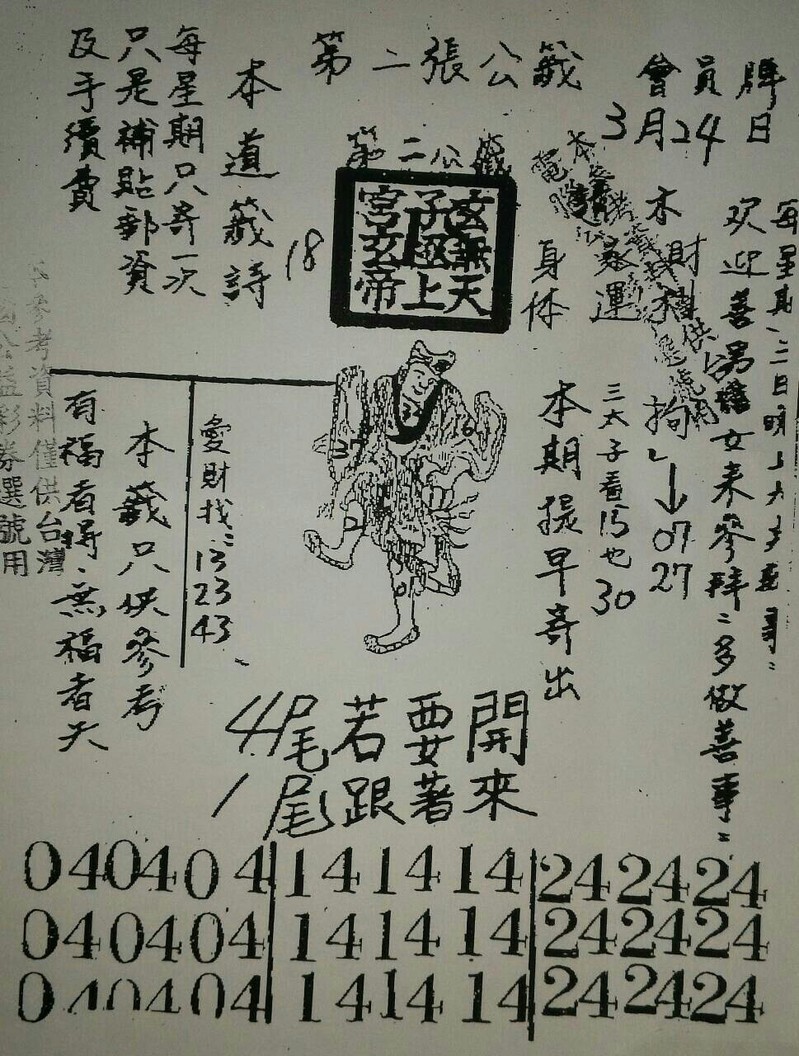 第二張公籤
會員牌
3月24日
第二公籤
玄無天
子極上
宮玄帝
18
本道籤詩
每星期只寄一次
只是補貼郵資
及手續費
欢迎善男信女来參拜
多做善事
身体
運
本期提早寄出
三太子看15也30
拘
07
27
愛財找
13
23
43
本籤只供參考
有福者得、無福者失
參考資料僅供台灣
公益彩券選號用
37
6
01
4尾若要開
1尾跟著來
040404 141414 242424
040404 141414 242424
040404 141414 242424